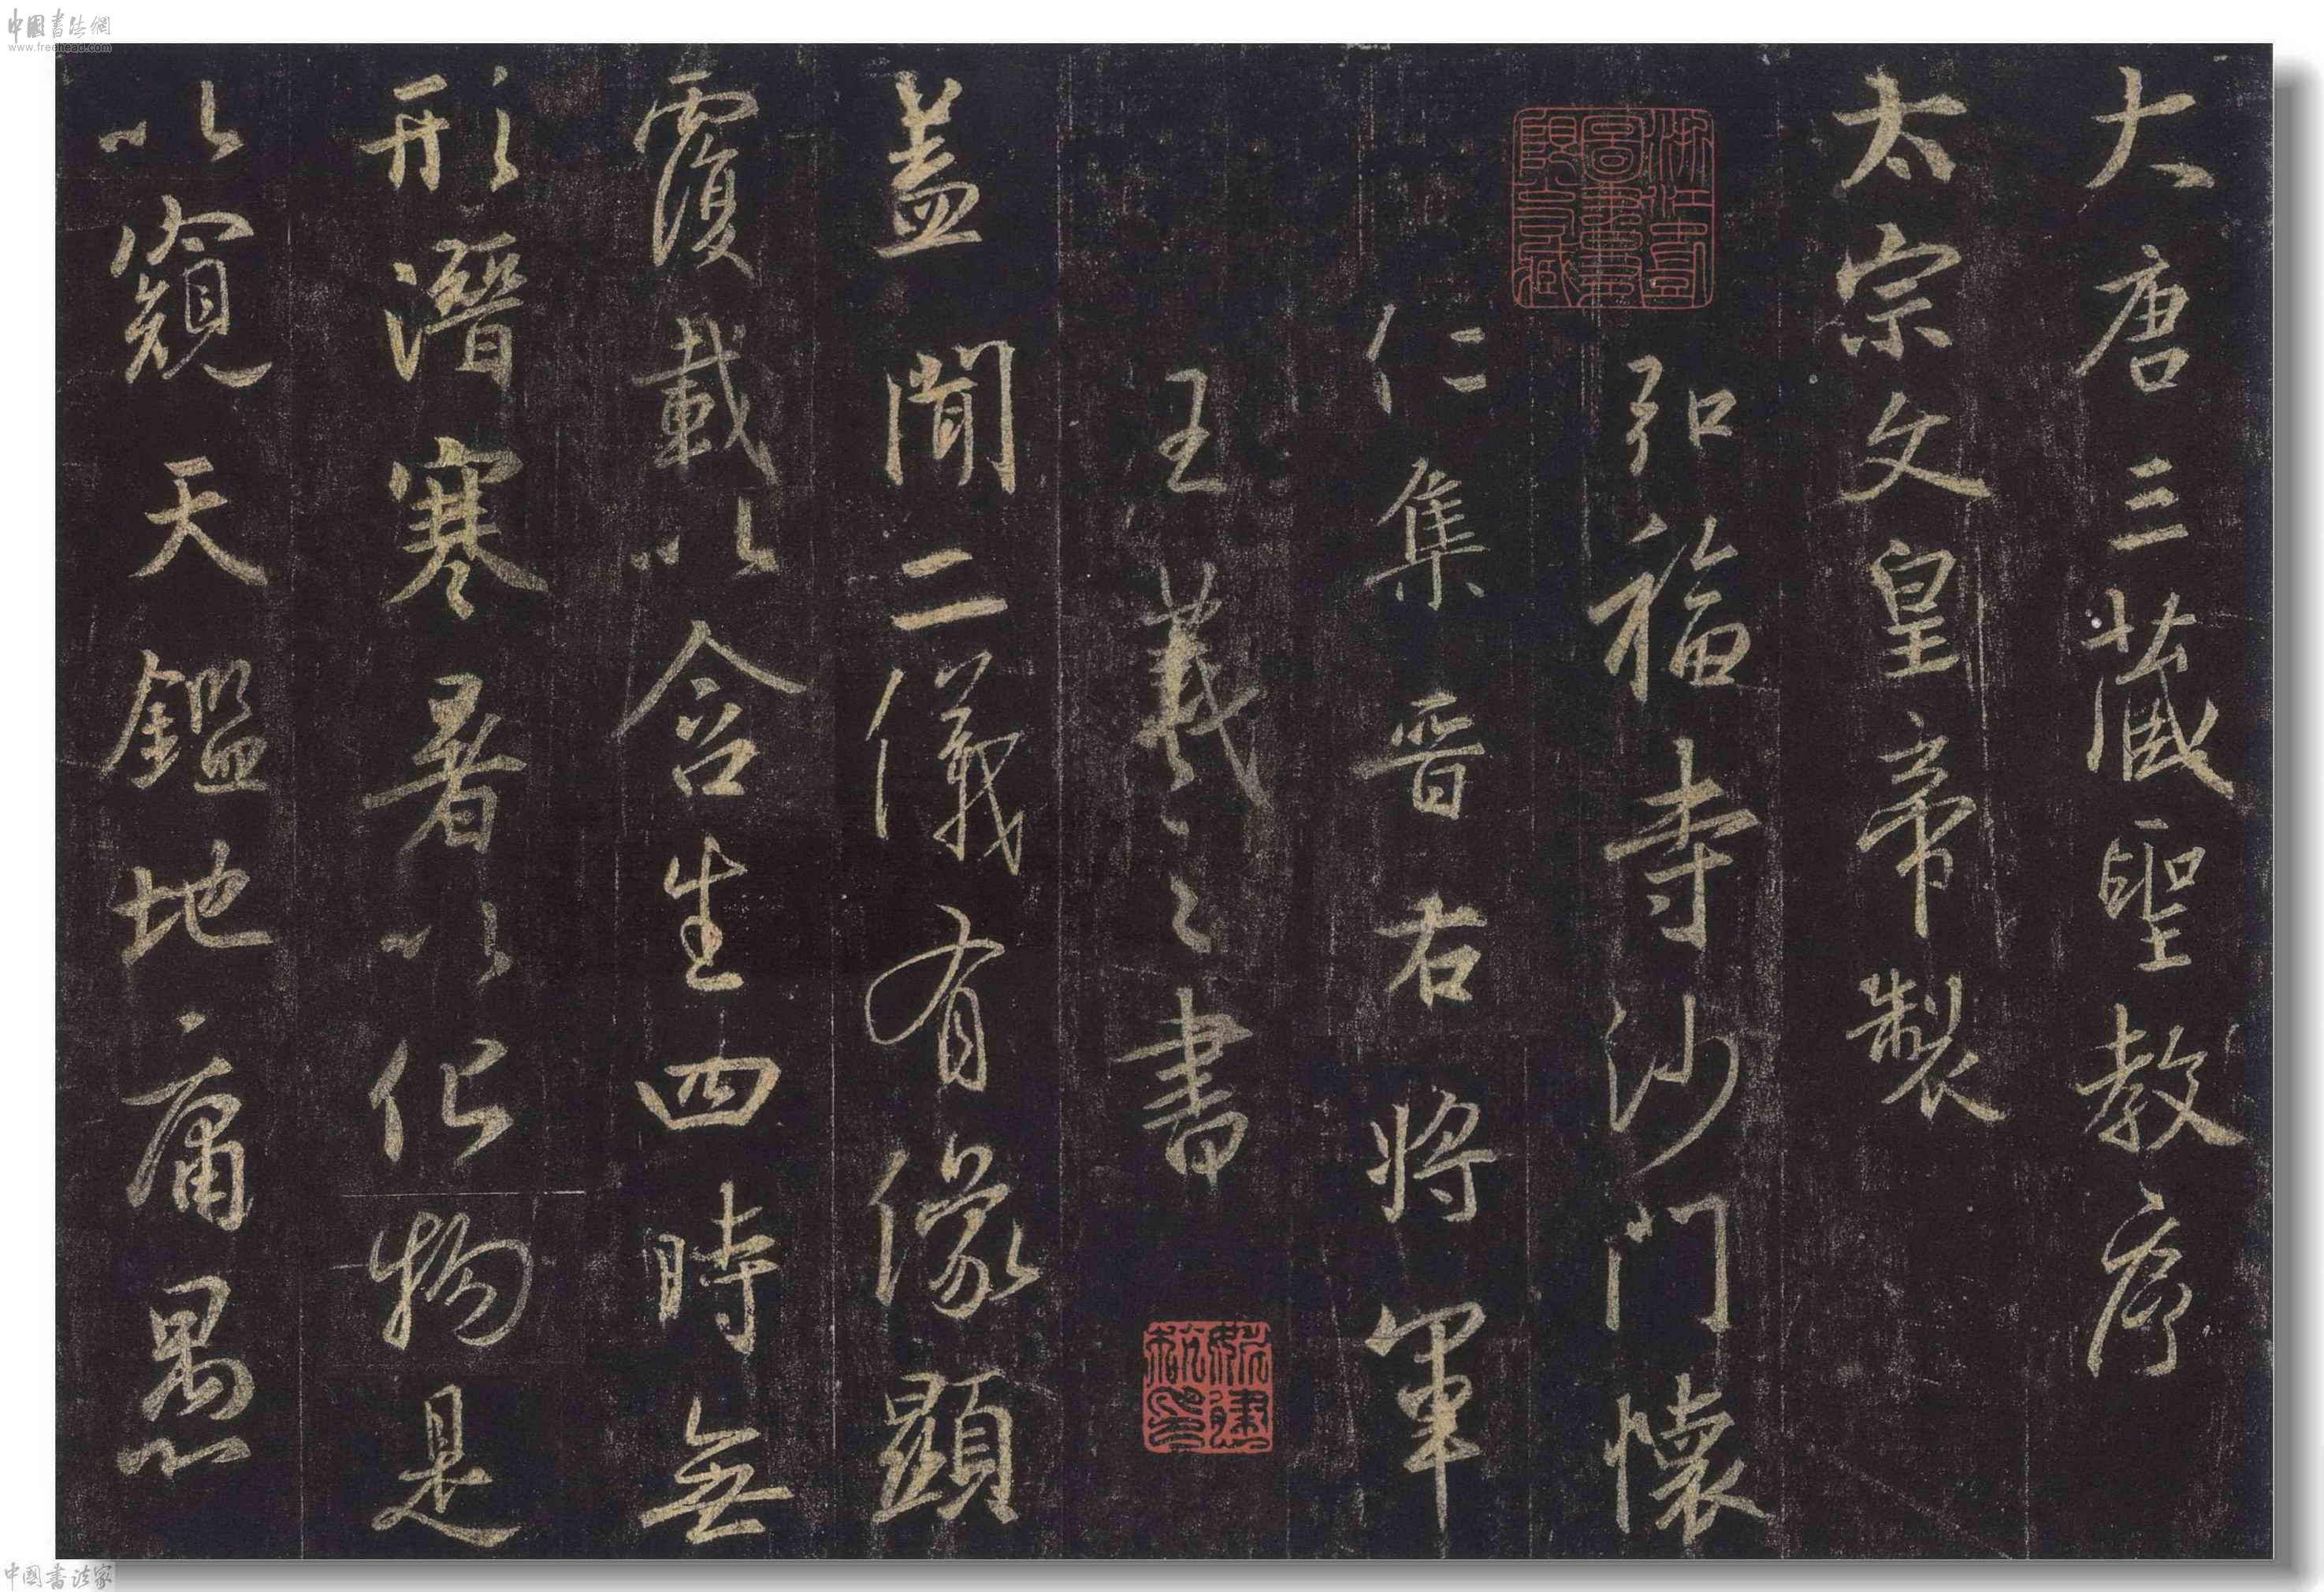 中國书法網
www.freehead.com
大唐三藏聖教序
太宗文皇帝製
弘福寺沙門懷
仁集晉右將軍
王羲之書
蓋聞二儀有像顯
覆載以含生四時無
形潛寒暑以化物是
以窺天鑑地庸愚
中國书法家